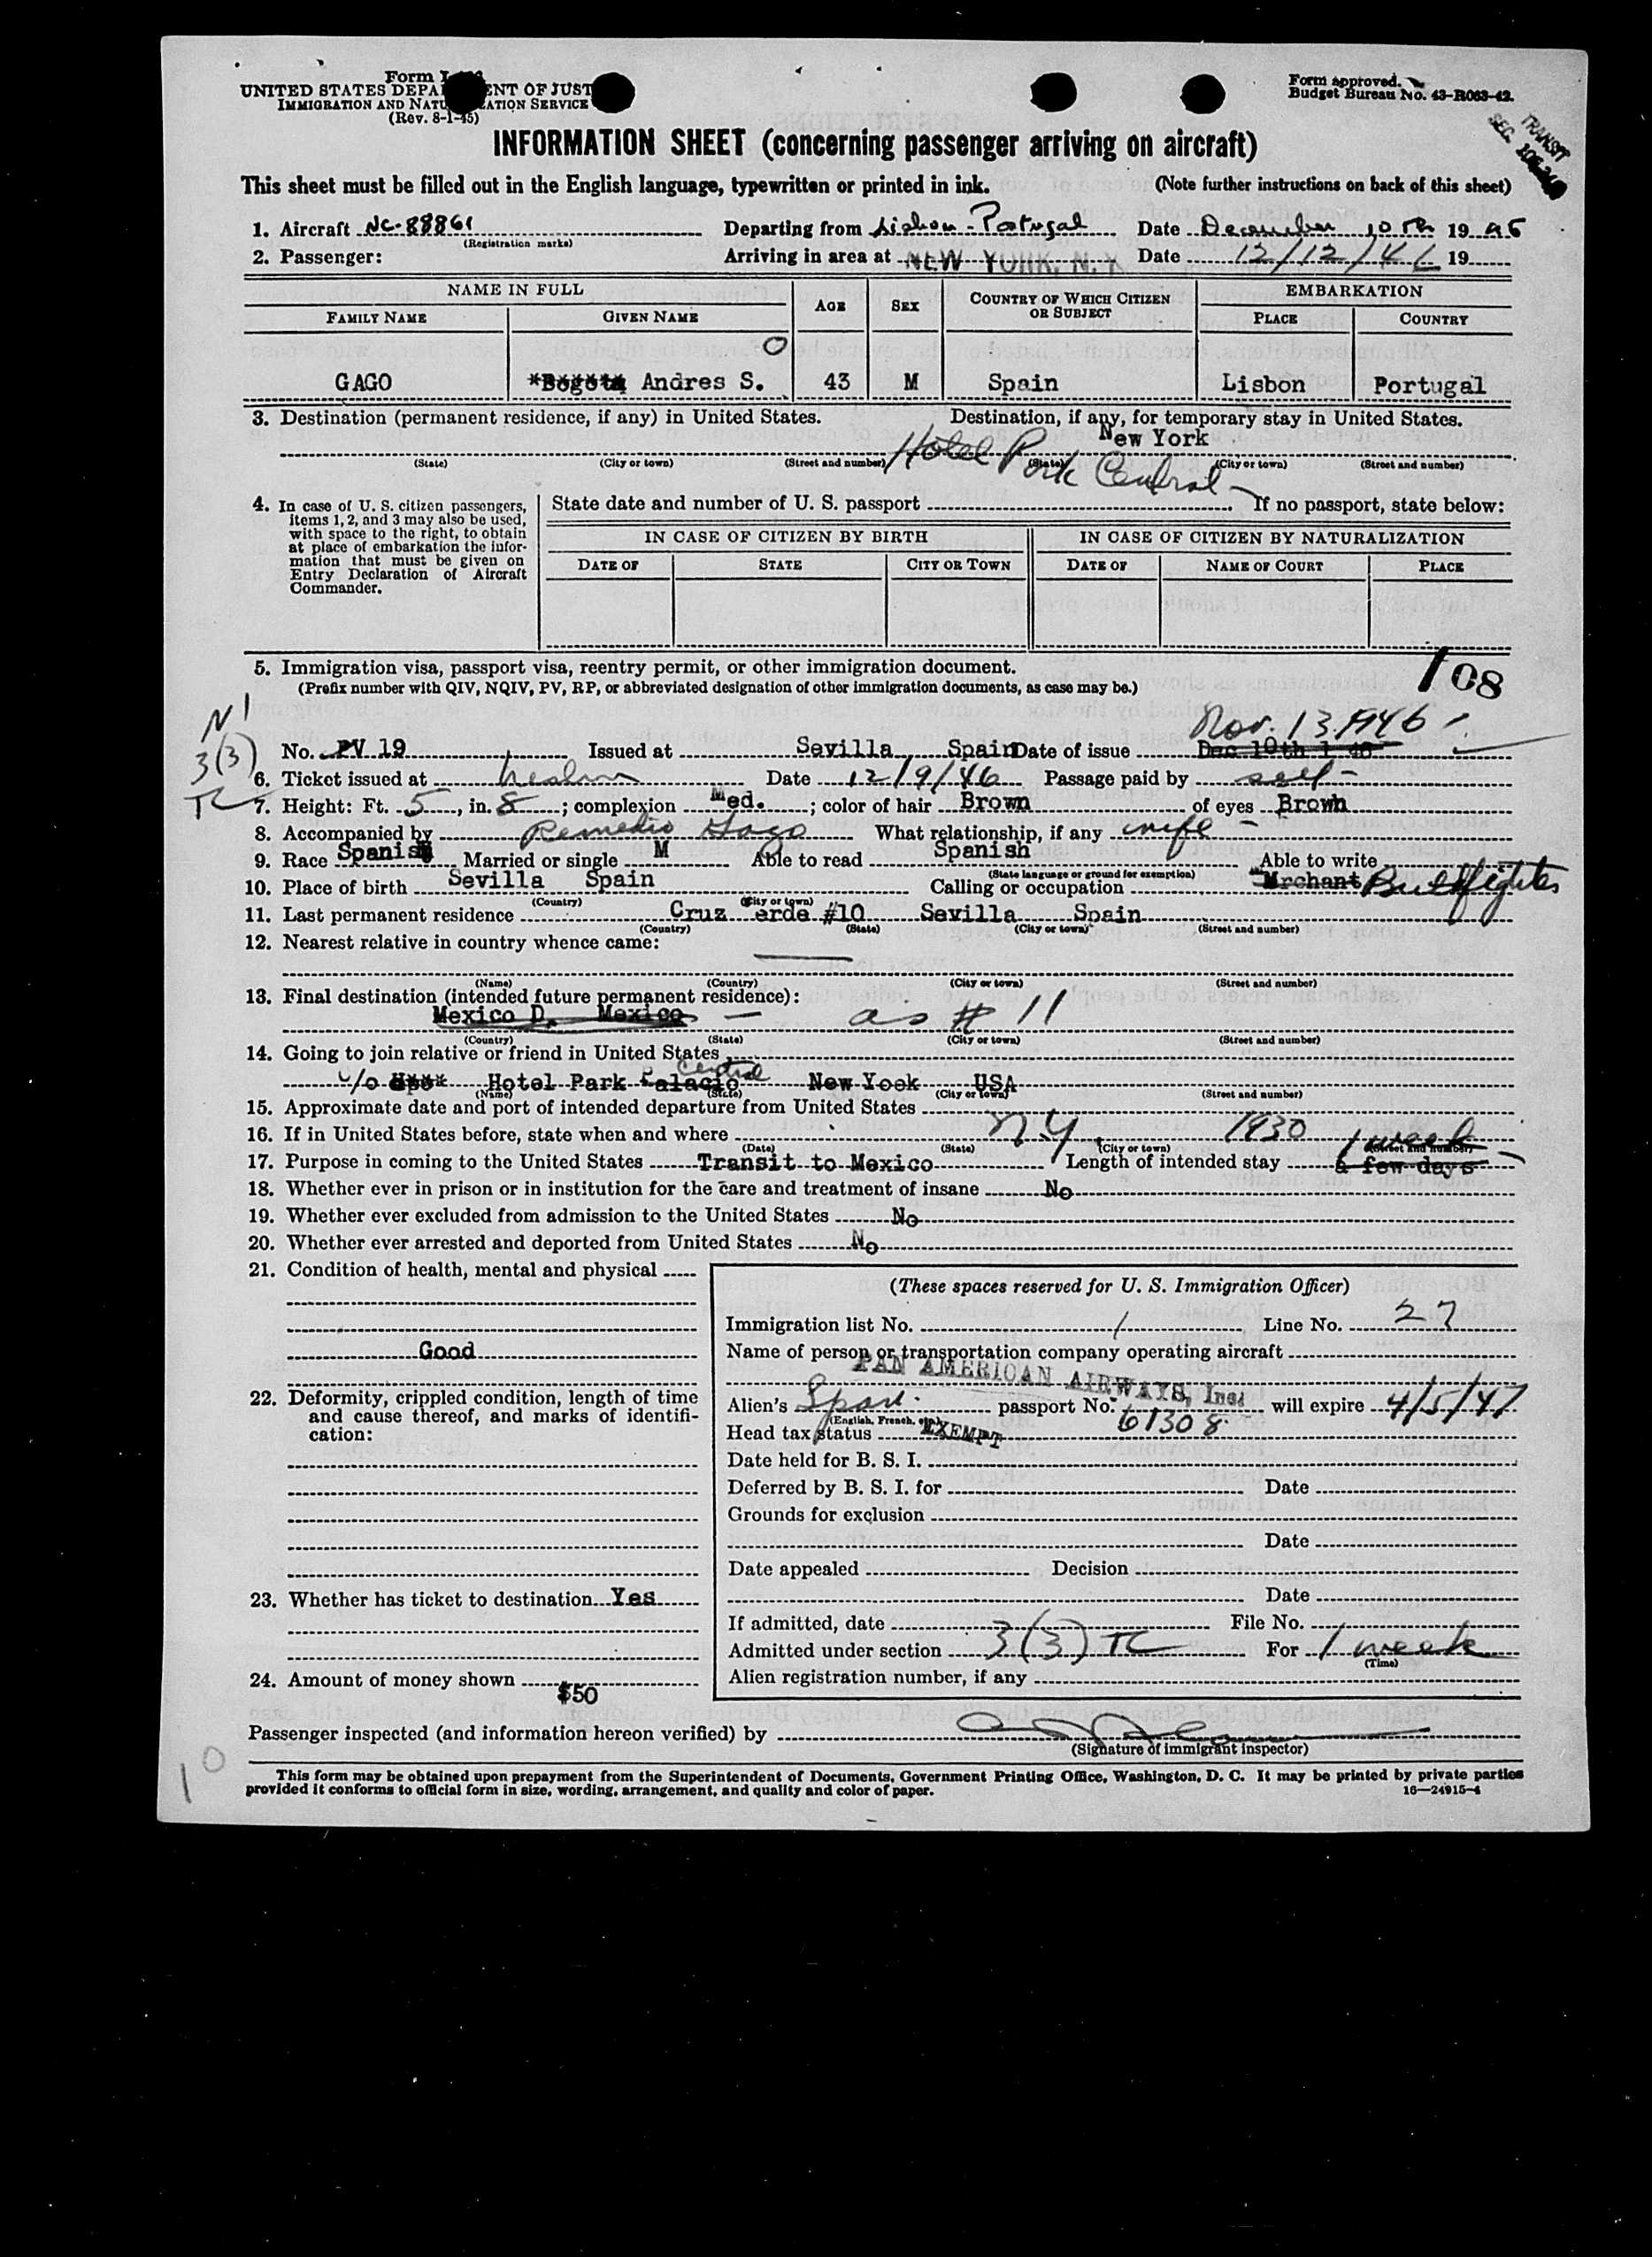 Form I-
UNITED STATES DEPA ENT OF JUST
IMMIGRATION AND NATU ATION SERVICE
(Rev. 8-1-45)
Form approved.
Budget Bureau No. 43-R063-42.
TRANSIT
SEC.
INFORMATION SHEET (concerning passenger arriving on aircraft)
This sheet must be filled out in the English language, typewritten or printed in ink. (Note further instructions on back of this sheet)
1. Aircraft NC-88861 Departing from Lisbon - Portugal Date December 10th 19 46
(Registration marks)
2. Passenger: Arriving in area at NEW YORK, N. Y. Date 12/12/46 19
NAME IN FULL AGE SEX COUNTRY OF WHICH CITIZEN OR SUBJECT EMBARKATION
FAMILY NAME GIVEN NAME PLACE COUNTRY
O
GAGO Andres S. 43 M Spain Lisbon Portugal
3. Destination (permanent residence, if any) in United States. Destination, if any, for temporary stay in United States.
New York
Hotel Park Central
(State) (City or town) (Street and number) (State) (City or town) (Street and number)
4. In case of U. S. citizen passengers, items 1, 2, and 3 may also be used, with space to the right, to obtain at place of embarkation the information that must be given on Entry Declaration of Aircraft Commander.
State date and number of U. S. passport If no passport, state below:
IN CASE OF CITIZEN BY BIRTH IN CASE OF CITIZEN BY NATURALIZATION
DATE OF STATE CITY OR TOWN DATE OF NAME OF COURT PLACE
5. Immigration visa, passport visa, reentry permit, or other immigration document.
(Prefix number with QIV, NQIV, PV, RP, or abbreviated designation of other immigration documents, as case may be.)
108
Nov. 13, 1946
No. PV 19 Issued at Sevilla Spain Date of issue Dec 10th 1 46
3(3)
TC
6. Ticket issued at Lisbon Date 12/9/46 Passage paid by self -
7. Height: Ft. 5, in. 8; complexion Med.; color of hair Brown of eyes Brown
8. Accompanied by Remedio Gago What relationship, if any wife -
9. Race Spanish Married or single M Able to read Spanish Able to write
(State language or ground for exemption)
10. Place of birth Sevilla Spain Calling or occupation Mrchant Bullfighter
(Country) (City or town)
11. Last permanent residence Cruz erde #10 Sevilla Spain
(Country) (State) (City or town) (Street and number)
12. Nearest relative in country whence came:
(Name) (Country) (City or town) (Street and number)
13. Final destination (intended future permanent residence):
Mexico D. Mexico - as # 11
(Country) (State) (City or town) (Street and number)
14. Going to join relative or friend in United States
c/o Hotel Park Palacio Central New Yoek USA
(Name) (State) (City or town) (Street and number)
15. Approximate date and port of intended departure from United States
16. If in United States before, state when and where N.Y. 1930
(Date) (State) (City or town) (Street and number)
1 week
17. Purpose in coming to the United States Transit to Mexico Length of intended stay a few days
18. Whether ever in prison or in institution for the care and treatment of insane No
19. Whether ever excluded from admission to the United States No
20. Whether ever arrested and deported from United States No
21. Condition of health, mental and physical
Good
22. Deformity, crippled condition, length of time and cause thereof, and marks of identification:
23. Whether has ticket to destination Yes
24. Amount of money shown $50
(These spaces reserved for U. S. Immigration Officer)
Immigration list No. 1 Line No. 27
Name of person or transportation company operating aircraft
PAN AMERICAN AIRWAYS, Inc.
Alien's Span. passport No. 61308 will expire 4/5/47
(English, French, etc.)
Head tax status EXEMPT
Date held for B. S. I.
Deferred by B. S. I. for Date
Grounds for exclusion
Date
Date appealed Decision
Date
If admitted, date File No.
Admitted under section 3(3) TC For 1 week
(Time)
Alien registration number, if any
Passenger inspected (and information hereon verified) by
(Signature of immigrant inspector)
10
This form may be obtained upon prepayment from the Superintendent of Documents, Government Printing Office, Washington, D. C. It may be printed by private parties
provided it conforms to official form in size, wording, arrangement, and quality and color of paper. 16—24915-4